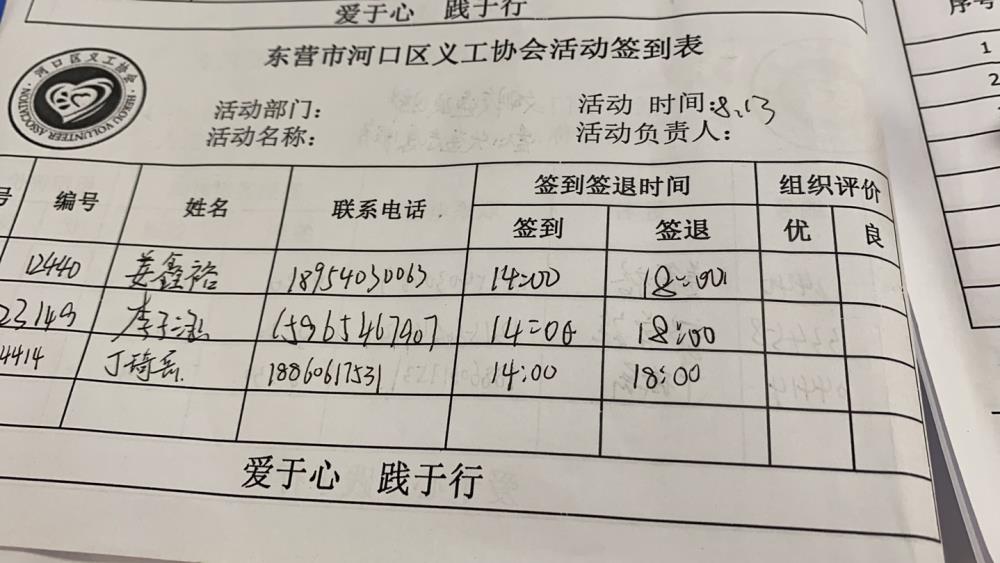 爱于心 践于行
序号
东营市河口区义工协会活动签到表
河口区义工协会
HEKOU VOLUNTEER ASSOCIATION
活动部门: 活动 时间:8.13
活动名称: 活动负责人:
号 编号 姓名 联系电话 签到签退时间 组织评价
签到 签退 优 良
12440 姜鑫裕 18954030063 14:00 18:00
23149 李子泓 15965467907 14:00 18:00
4414 丁琦 18860617531 14:00 18:00
爱于心 践于行
1
2